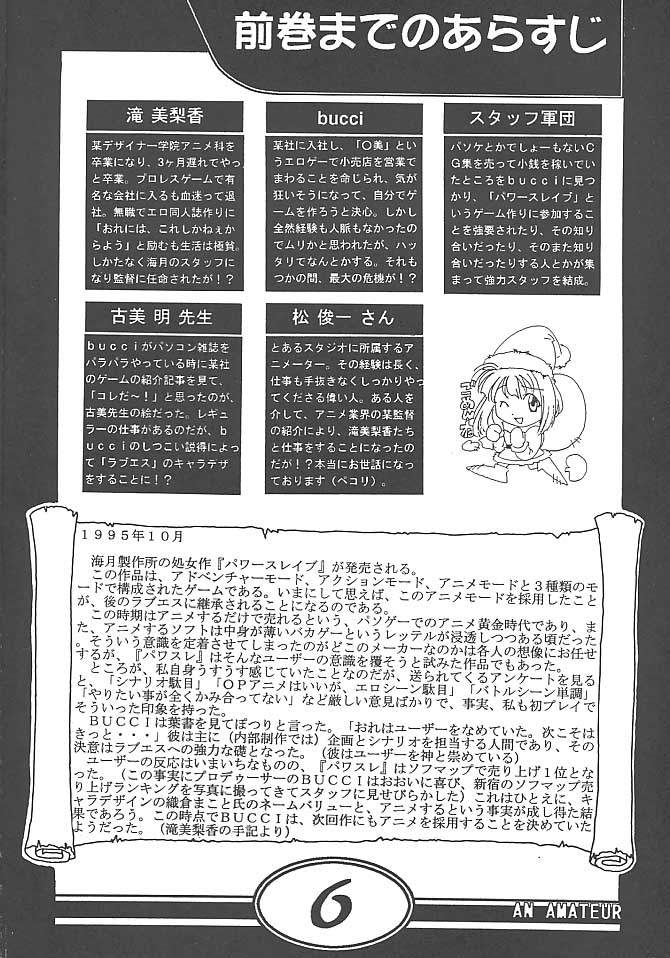 前巻までのあらすじ
滝 美梨香
某デザイナー学院アニメ科を
卒業になり、3ヶ月遅れてやっ
と卒業。プロレスゲームで有
名な会社に入るも血迷って退
社。無職でエロ同人誌作りに
「おれには、これしかねぇか
らよう」と励むも生活は極貧。
しかたなく海月のスタッフに
なり監督に任命されたが！？
bucci
某社に入社し、「O美」とい
うエロゲーで小売店を営業で
まわることを命じられ、気が
狂いそうになって、自分でゲ
ームを作ろうと決心。しかし
全然経験も人脈もなかったの
でムリかと思われたが、ハッ
タリでなんとかする。それも
つかの間、最大の危機が！？
スタッフ軍団
パソケとかでしょーもないC
G集を売って小銭を稼いでい
たところをbucciに見つ
かり、「パワースレイブ」と
いうゲーム作りに参加するこ
とを強要されたり、その知り
合いだったり、そのまた知り
合いだったりする人とかが集
まって強力スタッフを結成。
古美 明 先生
bucciがパソコン雑誌を
パラパラやっている時に某社
のゲームの紹介記事を見て、
「コレだ～！」と思ったのが、
古美先生の絵だった。レギュ
ラーの仕事があるのだが、b
ucciのしつこい説得によっ
て「ラブエス」のキャラデザ
をすることに！？
松 俊一 さん
とあるスタジオに所属するア
ニメーター。その経験は長く、
仕事も手抜きなくしっかりやっ
てくださる偉い人。ある人を
介して、アニメ業界の某監督
の紹介により、滝美梨香たち
と仕事をすることになったの
だが！？本当にお世話になっ
ております（ペコリ）。
1995年10月
海月製作所の処女作『パワースレイブ』が発売される。
この作品は、アドベンチャーモード、アクションモード、アニメモードと3種類のモ
ードで構成されたゲームである。いまにして思えば、このアニメモードを採用したこと
が、後のラブエスに継承されることになるのである。
この時期はアニメするだけで売れるという、パソゲーでのアニメ黄金時代であり、ま
た、アニメするソフトは中身が薄いバカゲーというレッテルが浸透しつつある頃だった
。そういう意識を定着させてしまったのがどこのメーカーなのかは各人の想像にお任せ
するが、『パワスレ』はそんなユーザーの意識を覆そうと試みた作品でもあった。
ところが、私自身うすうす感じていたことなのだが、送られてくるアンケートを見る
と、「シナリオ駄目」「OPアニメはいいが、エロシーン駄目」「バトルシーン単調」
「やりたい事が全くかみ合ってない」など厳しい意見ばかりで、事実、私も初プレイで
そういった印象を持った。
BUCCIは葉書を見てぽつりと言った。「おれはユーザーをなめていた。次こそは
きっと・・・」彼は主に（内部制作では）企画とシナリオを担当する人間であり、その
決意はラブエスへの強力な礎となった。（彼はユーザーを神と崇めている）
ユーザーの反応はいまいちなものの、『パワスレ』はソフマップで売り上げ1位とな
った。（この事実にプロデゥーサーのBUCCIはおおいに喜び、新宿のソフマップ売
り上げランキングを写真に撮ってきてスタッフに見せびらかした）これはひとえに、キ
ャラデザインの織倉まこと氏のネームバリューと、アニメするという事実が成し得た結
果であろう。この時点でBUCCIは、次回作にもアニメを採用することを決めていた
ようだった。（滝美梨香の手記より）
6
AN AMATEUR